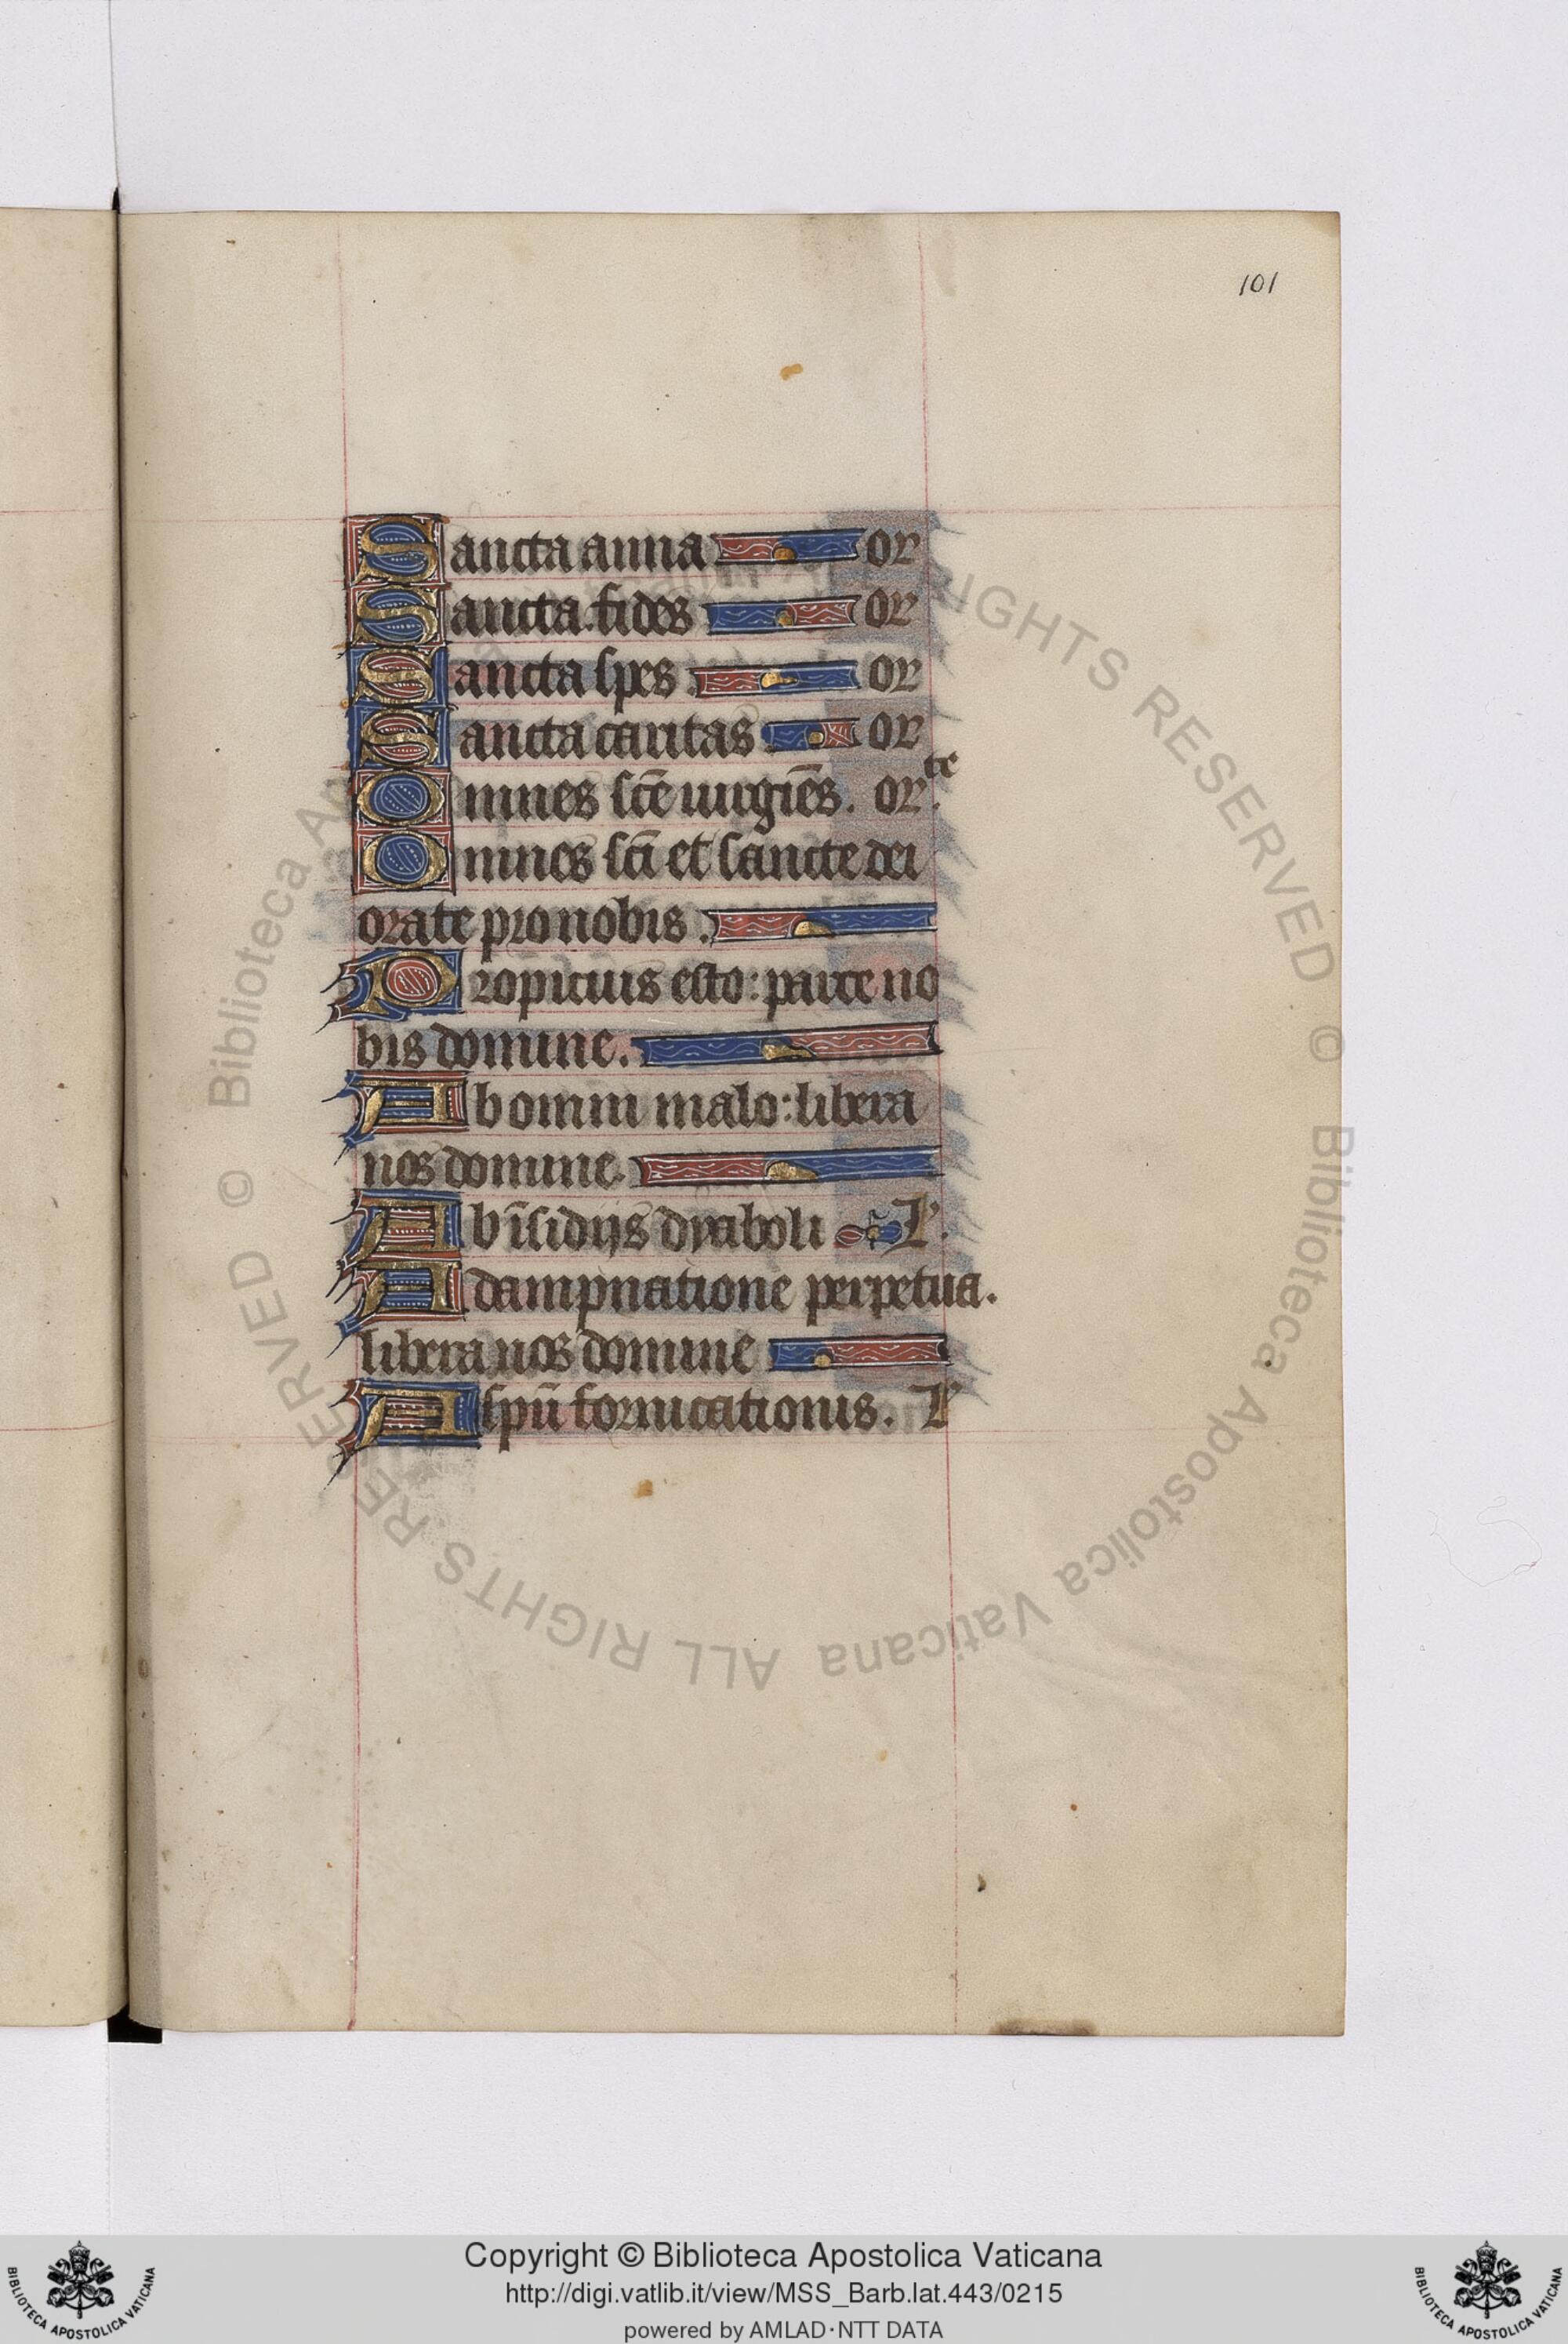 101
Sancta anna or
Sancta fides or
Sancta spes or
Sancta caritas or
Omnes sc̄e uirgiēs. or te.
Omnes sc̄i et sancte dei
orate pro nobis.
Propicius esto: parce no
bis domine.
Ab omni malo: libera
nos domine.
Ab īsidijs dyaboli L.
A dampnatione perpetua.
libera nos domine
A spū fornicationis. L
© Biblioteca Apostolica Vaticana ALL RIGHTS RESERVED
Copyright © Biblioteca Apostolica Vaticana
http://digi.vatlib.it/view/MSS_Barb.lat.443/0215
powered by AMLAD·NTT DATA
BIBLIOTECA APOSTOLICA VATICANA
BIBLIOTECA APOSTOLICA VATICANA